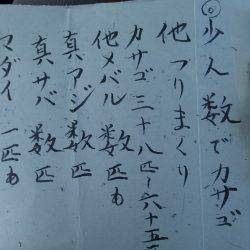 ◎少人数でカサゴ
他つりまくり
カサゴ三十八匹〜六十五匹
他メバル数匹あ
真アジ数匹
真サバ数匹
マダイ一匹あ